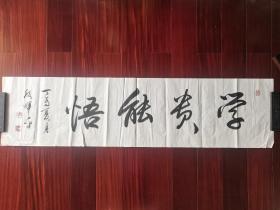 学贵能悟
丁酉夏月